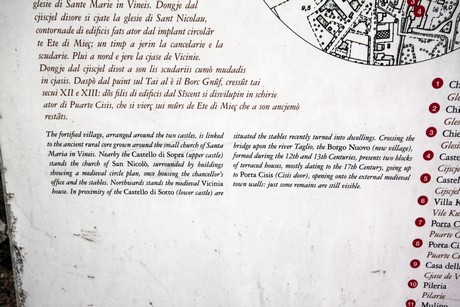 glesie di Sante Marie in Vineis. Dongje dal
cjiscjel disore si cjate la glesie di Sant Nicolau,
contornade di edificis fats ator dal implant circolâr
te Ete di Mieç; un timp a jerin la cancelarie e la
scudarie. Plui a nord e jere la cjase de Vicinie.
Dongje dal cjiscjel disot a son lis scudariis cumò mudadis
in cjasis. Daspò dal puint sul Tai al è il Borc Gnûf, cressût tai
secui XII e XIII: dôs filis di edificis dal Sîscent si disvilupin in schirie
ator di Puarte Cisis, che si vierç sui mûrs de Ete di Mieç che a son ancjemò
restâts.
The fortified village, arranged around the two castles, is linked
to the ancient rural core grown around the small church of Santa
Maria in Vineis. Nearby the Castello di Sopra (upper castle)
stands the church of San Nicolò, surrounded by buildings
showing a medieval circle plan, once housing the chancellor's
office and the stables. Northwards stands the medieval Vicinia
house. In proximity of the Castello di Sotto (lower castle) are
situated the stables recently turned into dwellings. Crossing the
bridge upon the river Taglio, the Borgo Nuovo (new village),
formed during the 12th and 13th Centuries, presents two blocks
of terraced houses, mostly dating to the 17th Century, going up
to Porta Cisis (Cisis door), opening onto the external medieval
town walls: just some remains are still visible.
9,5
3
4
1 Ch
Glesi
2 Chi
Glesi
3 Chie
Glesie
4 Caste
Cjiscje
5 Castel
Cjiscje
6 Villa K
Vile Ku
7 Porta C
Puarte C
8 Porta C
Puarte
9 Casa della
Cjase de V
10 Pileria
Pilarie
11 Mulino